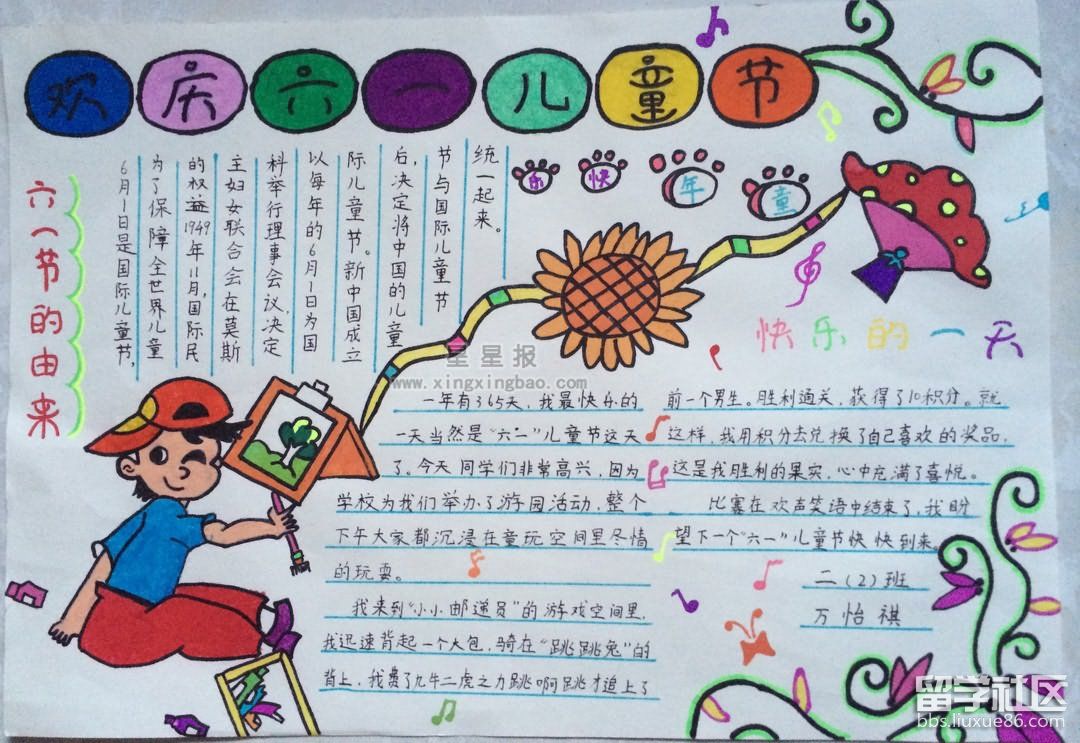 欢庆六一儿童节
六一节的由来
6月1日是国际儿童节,
为了保障全世界儿童
的权益1949年11月,国际民
主妇女联合会在莫斯
科举行理事会议,决定
以每年的6月1日为国
际儿童节。新中国成立
后,决定将中国的儿童
节与国际儿童节
统一起来。
童年快乐
快乐的一天
一年有365天,我最快乐的
一天当然是“六一”儿童节这天
了。今天同学们非常高兴,因为
学校为我们举办了游园活动,整个
下午大家都沉浸在童玩空间里尽情
的玩耍。
我来到“小小邮递员”的游戏空间里,
我迅速背起一个大包,骑在“跳跳兔”的
背上,我费了九牛二虎之力跳啊跳才追上了
前一个男生。胜利通关,获得了10积分。就
这样,我用积分去兑换了自己喜欢的奖品,
这是我胜利的果实,心中充满了喜悦。
比赛在欢声笑语中结束了,我盼
望下一个“六一”儿童节快快到来。
二(2)班
万怡祺
星星报
www.xingxingbao.com
留学社区
bbs.liuxue86.com